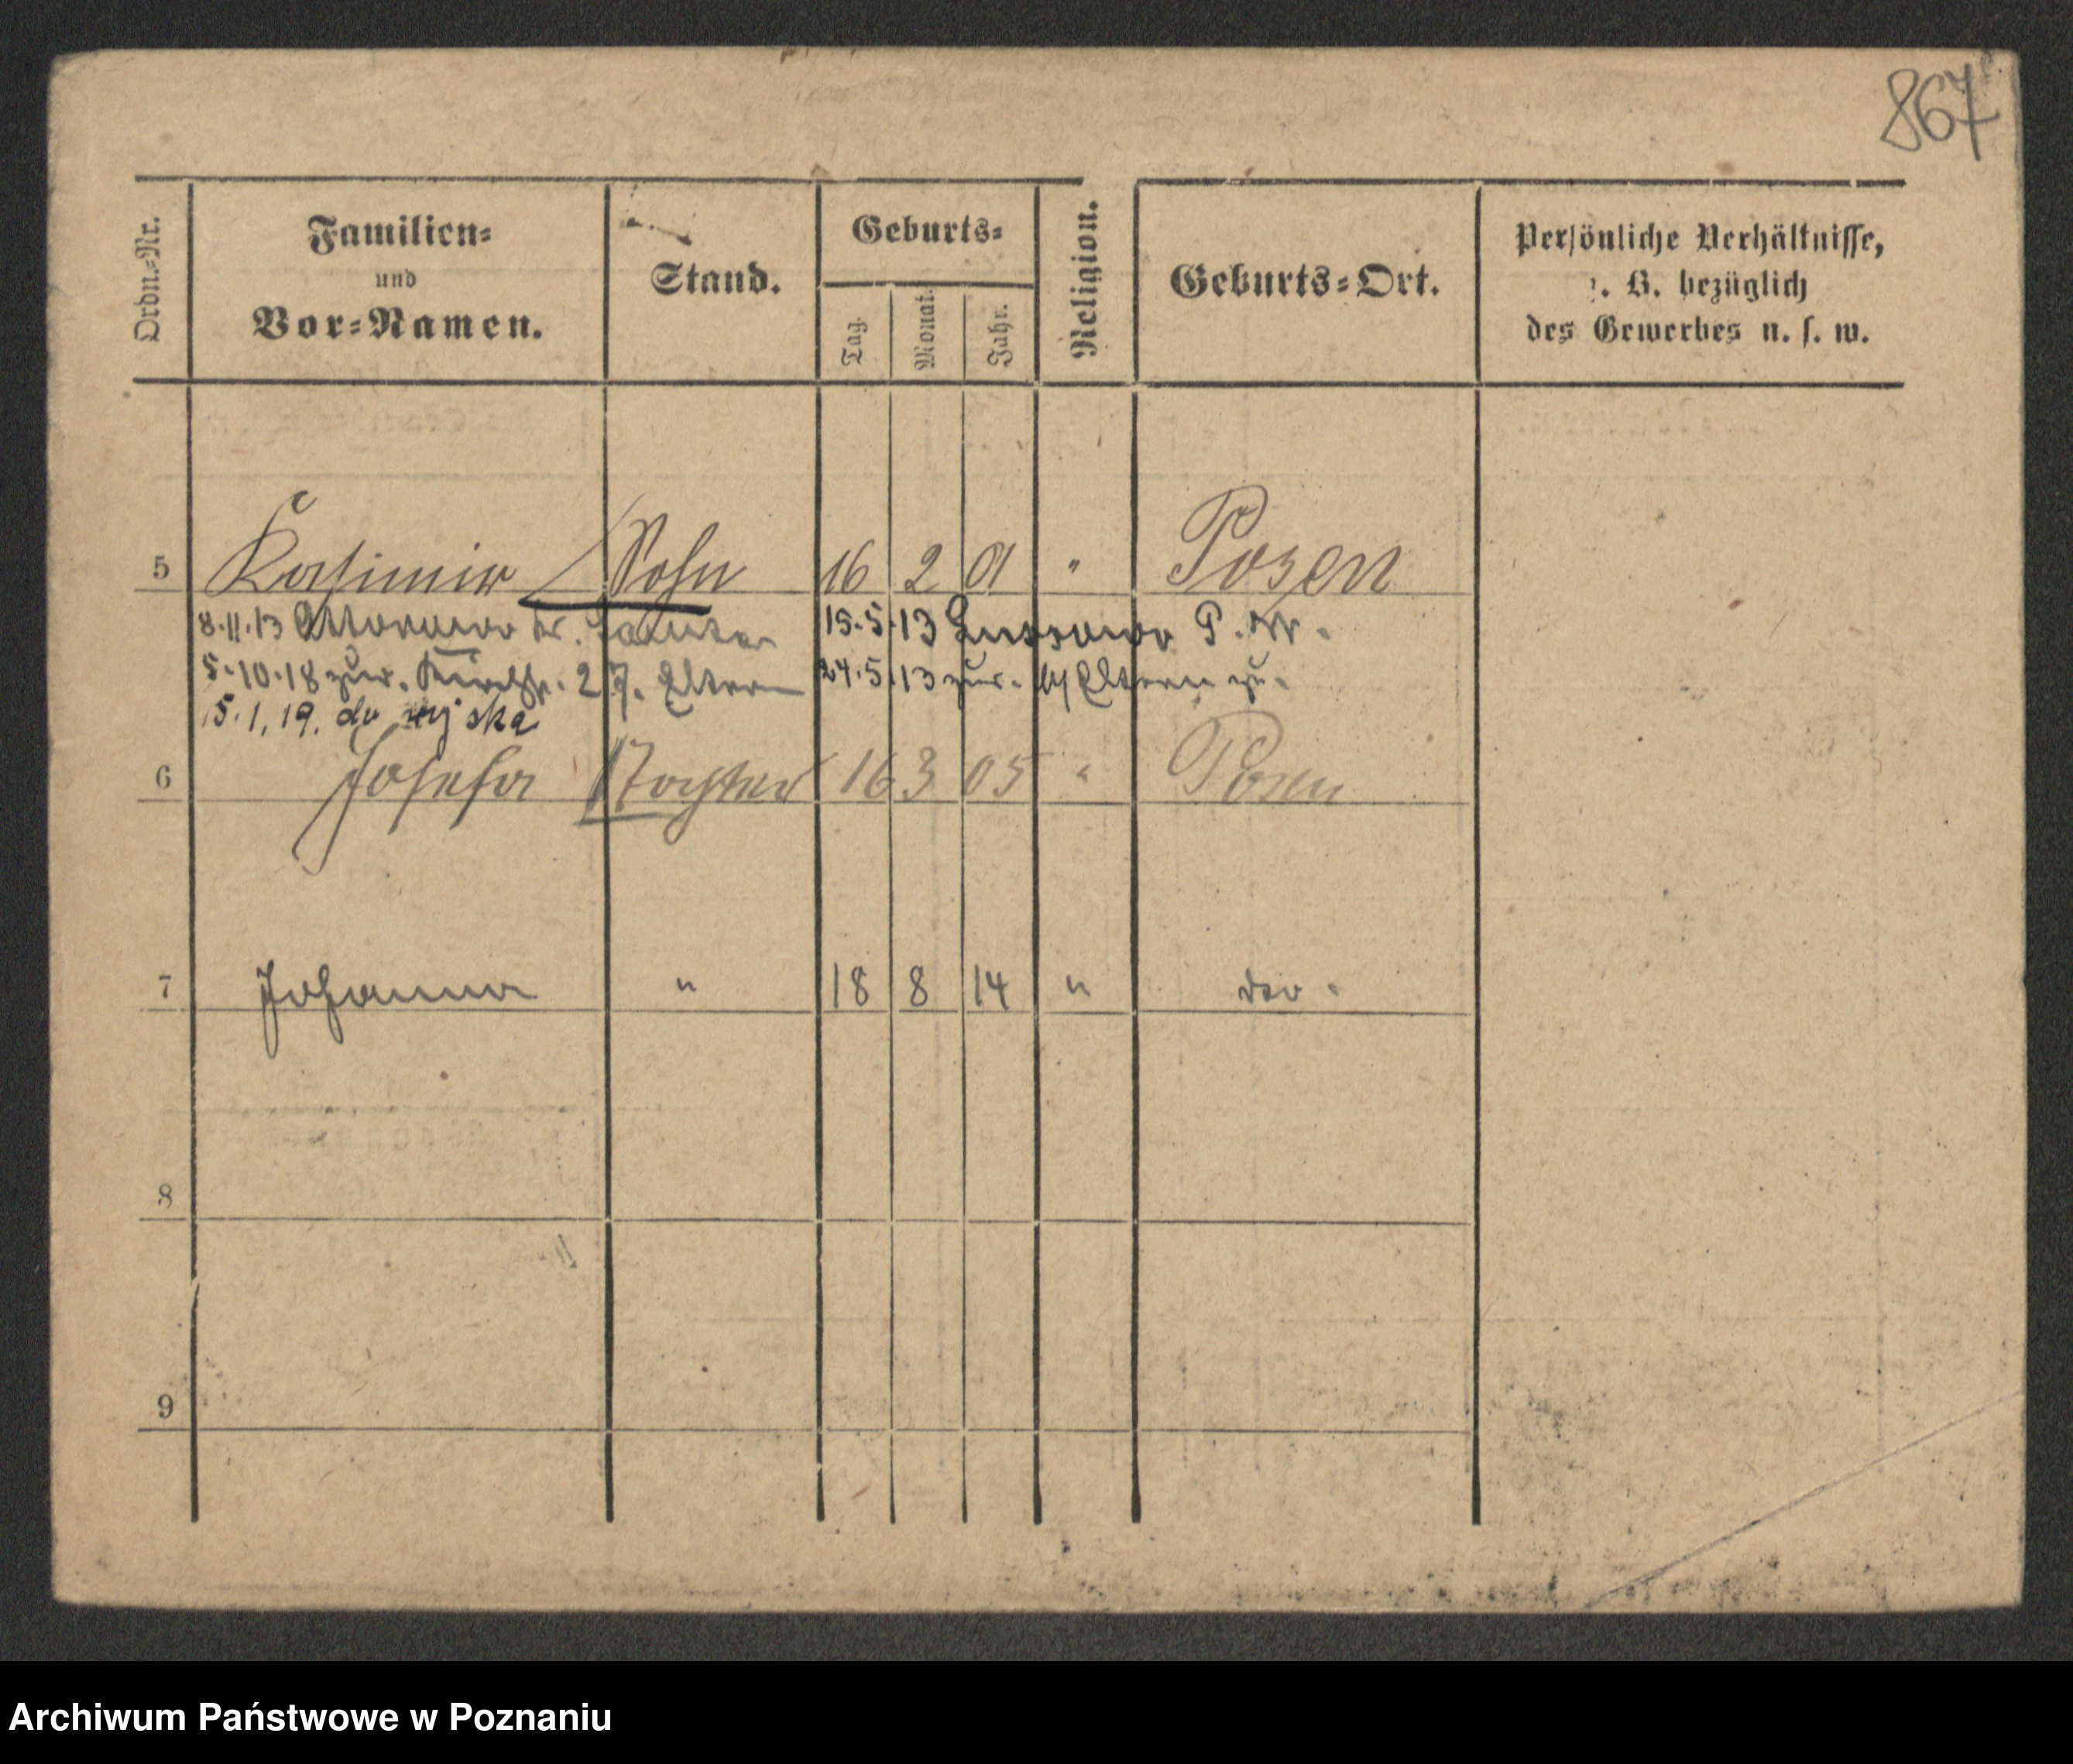 867
Ordn.-Nr.
Familien-
und
Vor-Namen.
Stand.
Geburts-
Tag.
Monat.
Jahr.
Religion.
Geburts-Ort.
Persönliche Verhältnisse,
z. B. bezüglich
des Gewerbes u. s. w.
5 Kasimir Sohn 16 2 01 " Posen
8.11.13 Kr. Samter 15.5.13 P. W.
5.10.18 zur. Kirchstr. 27. Eltern 24.5.13 zur. Eltern zu.
15.1.19. do wojska
6 Josefa Tochter 16 3 05 " Posen
7 Johanna " 18 8 14 "
8
9
Archiwum Państwowe w Poznaniu